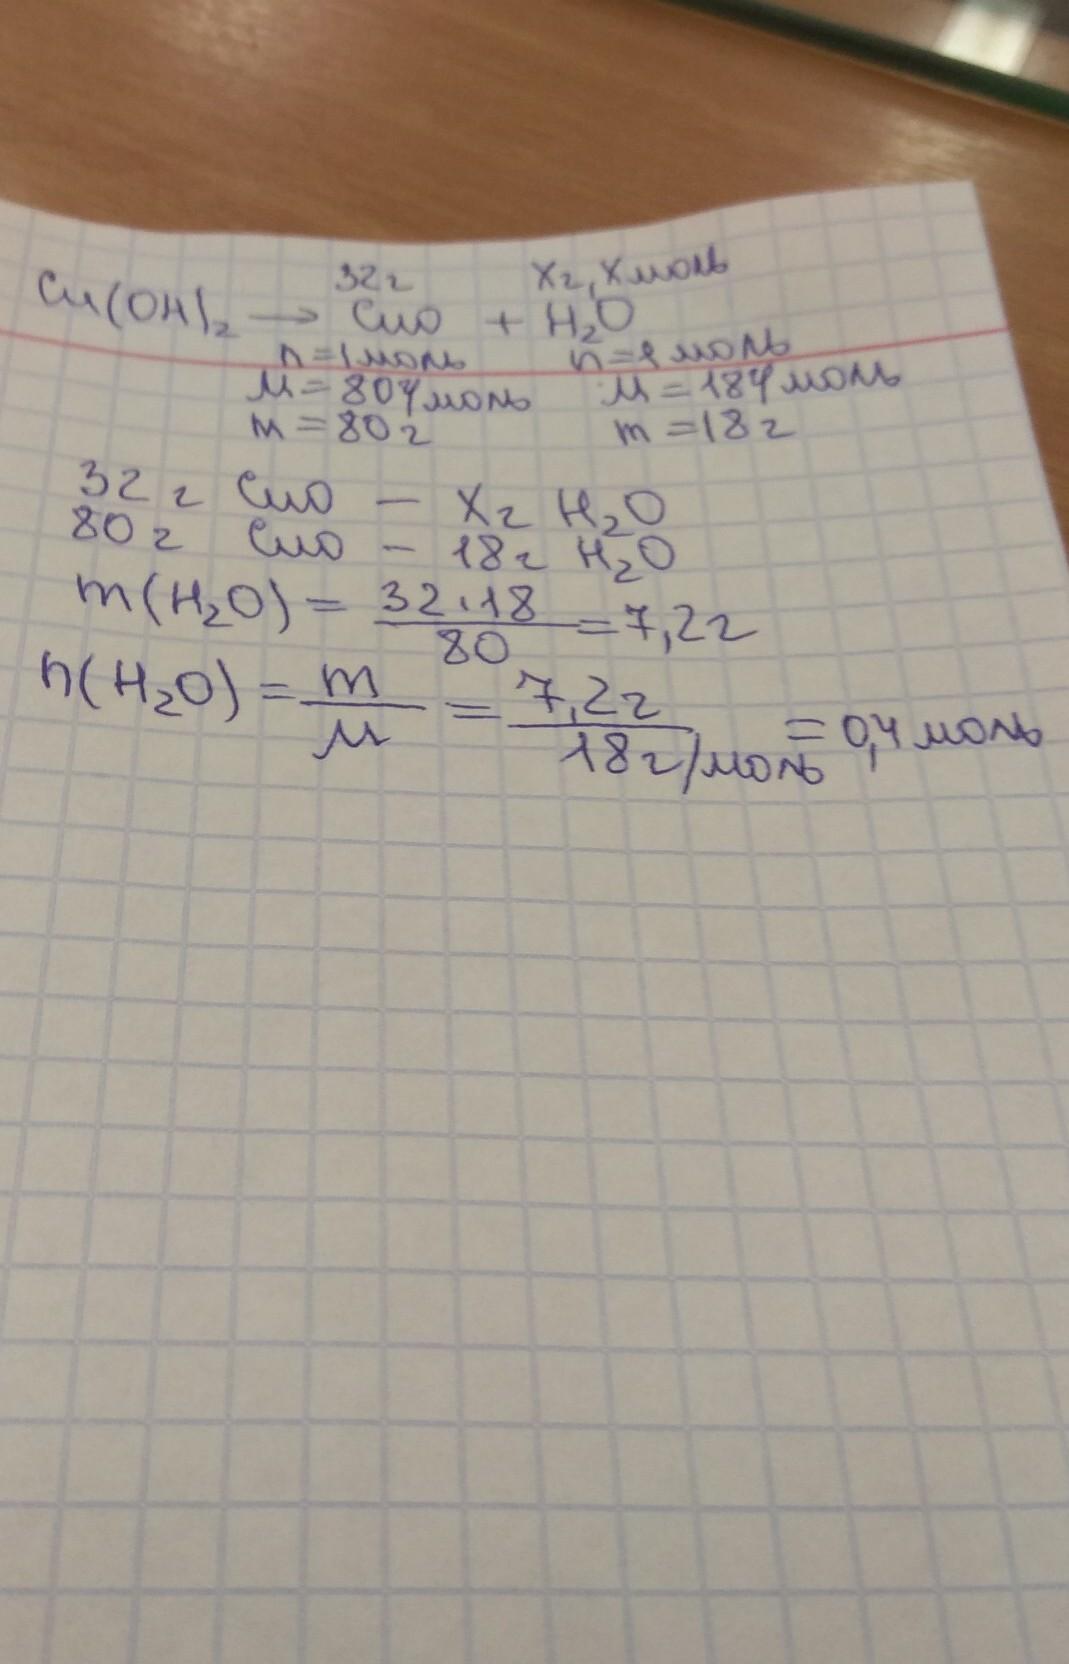 32г Xг, Xмоль
Cu(OH)₂ → CuO + H₂O
n=1моль n=1моль
M=80г/моль M=18г/моль
m=80г m=18г
32г CuO — Xг H₂O
80г CuO — 18г H₂O
m(H₂O) = 32·18/80 = 7,2г
n(H₂O) = m/M = 7,2г/18г/моль = 0,4моль